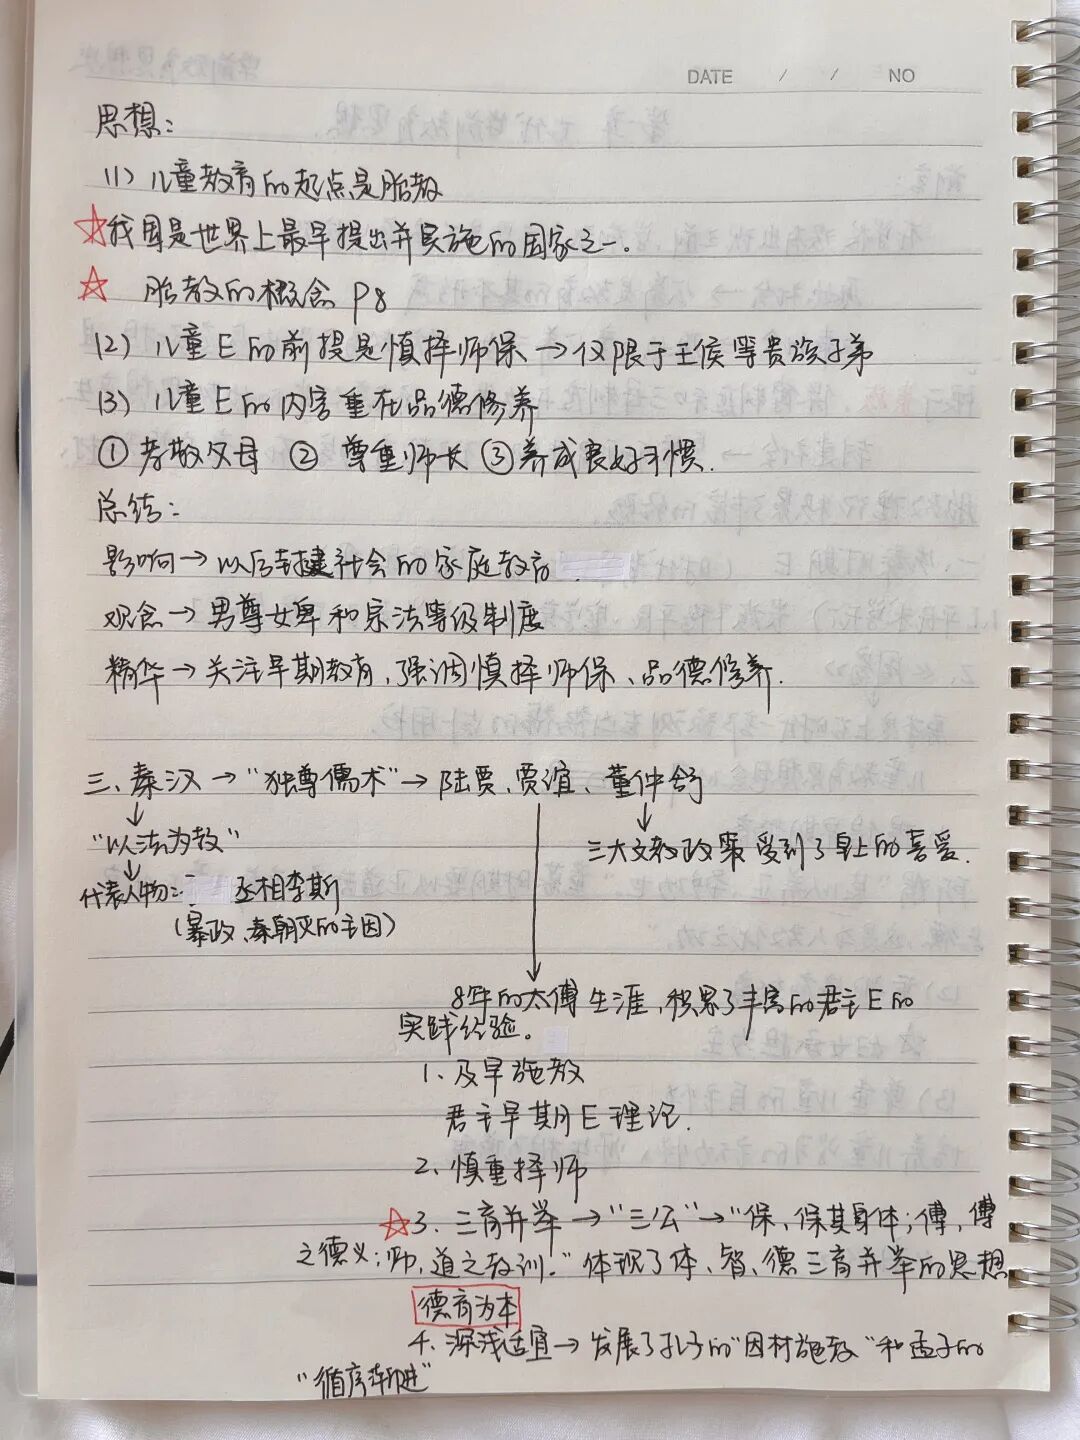 DATE / / NO
思想：
(1) 儿童教育的起点是胎教
☆我国是世界上最早提出并实施的国家之一.
☆ 胎教的概念 P8
(2) 儿童E的前提是慎择师保→仅限于王侯等贵族子弟
(3) 儿童E的内容重在品德修养
① 孝敬父母 ② 尊重师长 ③养成良好习惯.
总结：
影响→以后封建社会的家庭教育
观念→男尊女卑和宗法等级制度
精华→关注早期教育,强调慎择师保、品德修养.
三、秦汉→"独尊儒术"→陆贾、贾谊、董仲舒
↓ ↓ ↓
"以法为教" 三大文教政策受到了皇上的喜爱.
↓
代表人物： 丞相李斯
(暴政、秦朝灭的主因)
8年的太傅生涯,积累了丰富的君主E的
实践经验。
1、及早施教
君主早期E理论.
2、慎重择师
☆3、三育并举→"三公"→"保,保其身体;傅,傅
之德义;师,道之教训."体现了体、智、德三育并举的思想
德育为本
4、深浅适宜→发展了孔子的"因材施教"和孟子的
"循序渐进"